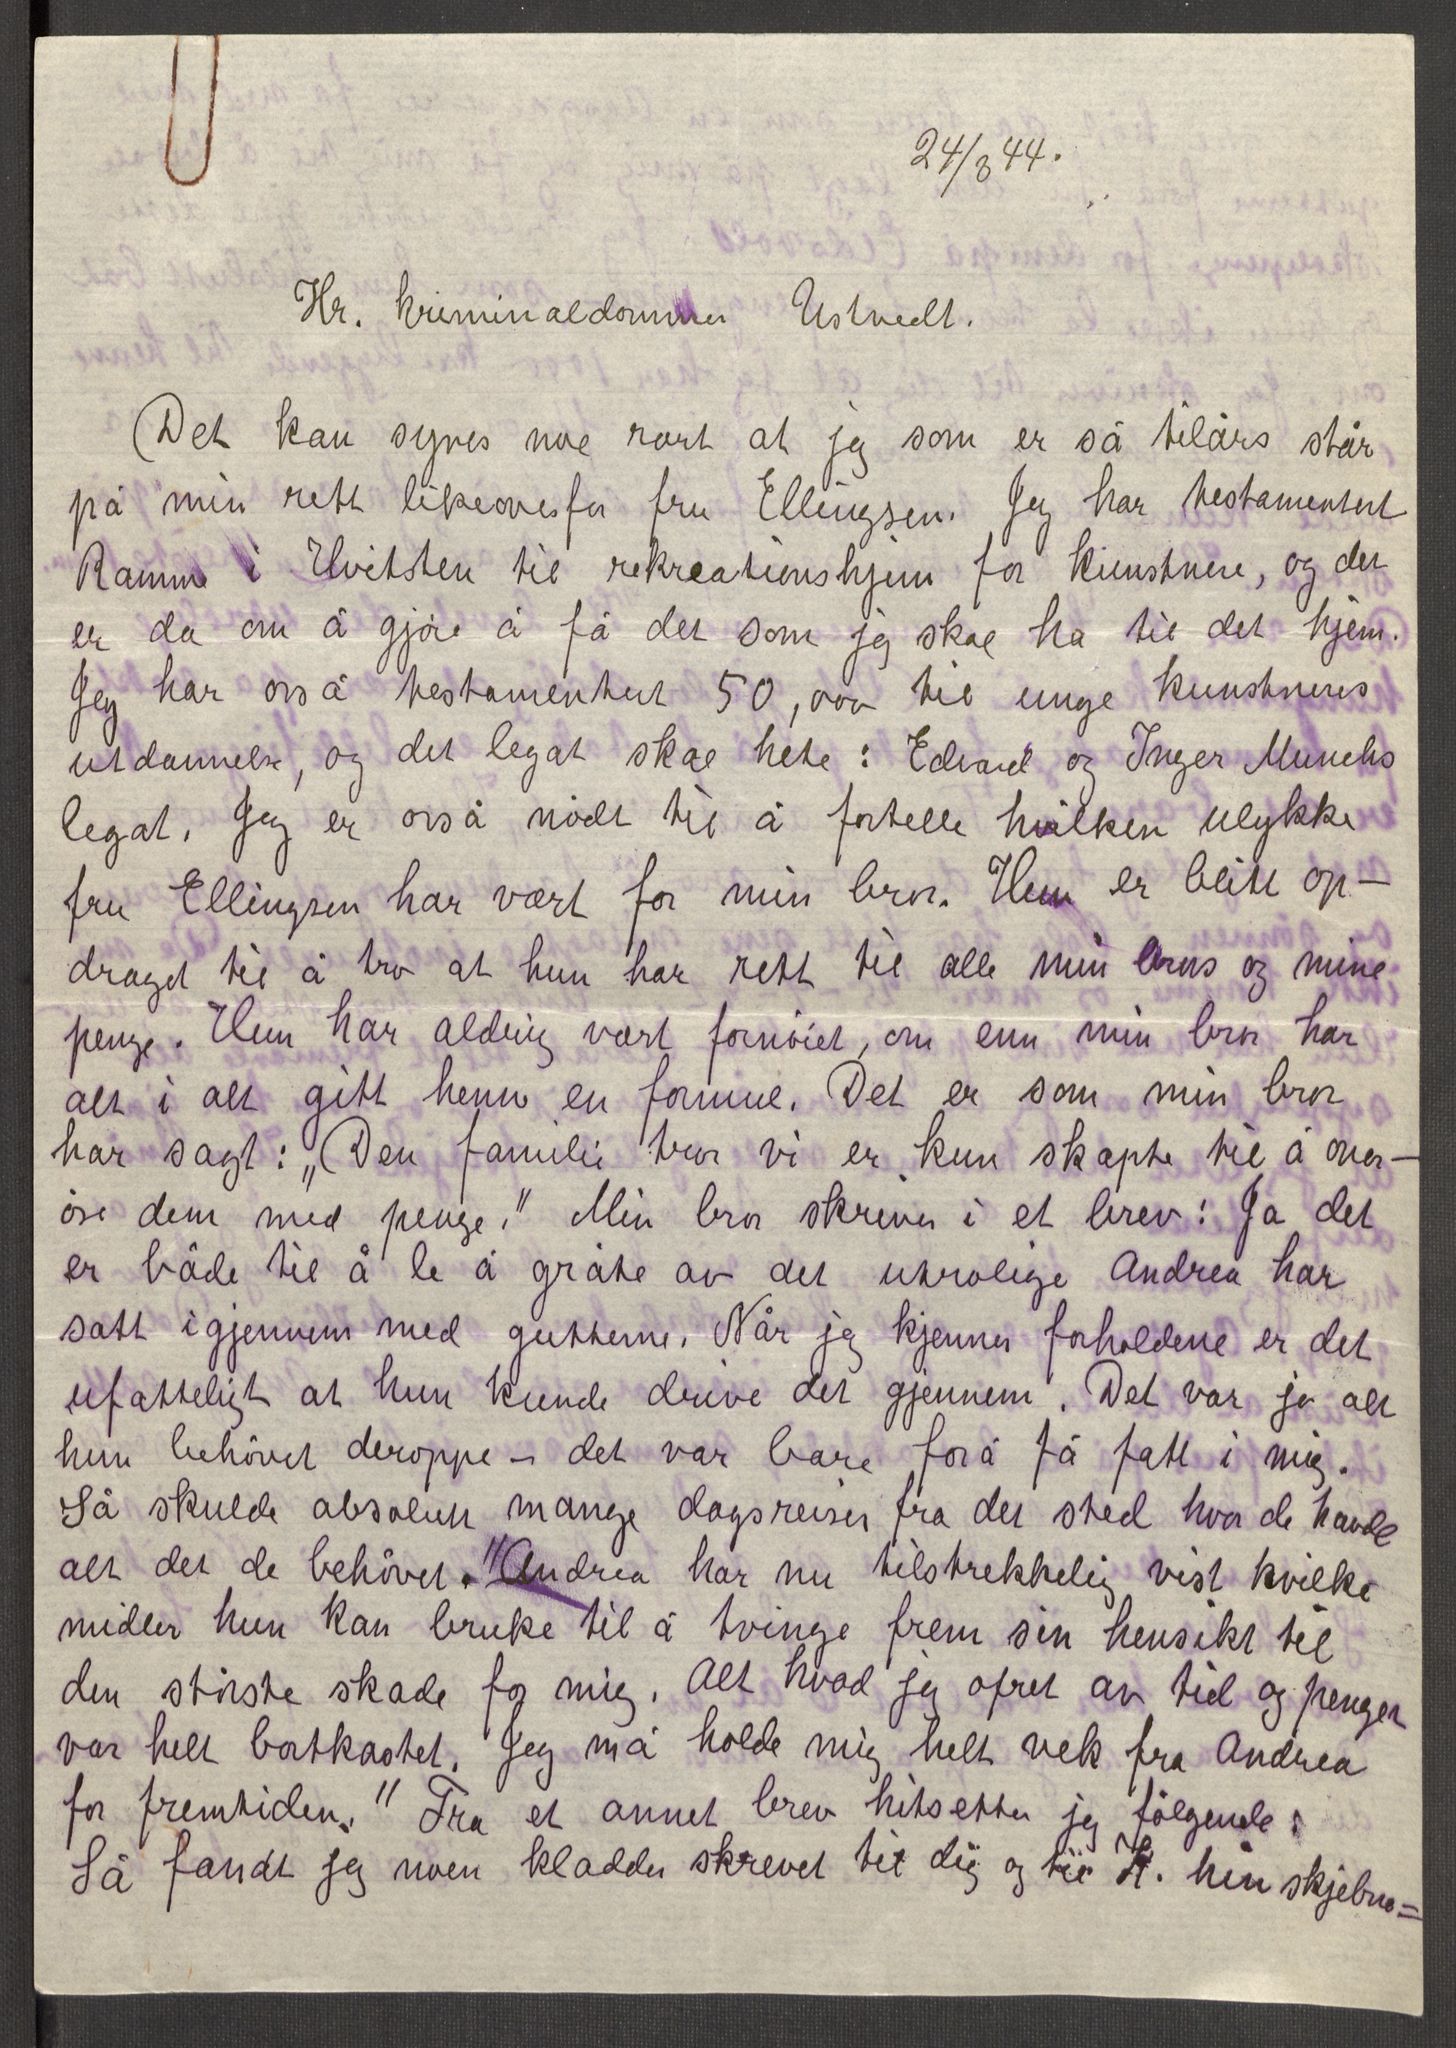 24/3 44.
Hr. kriminaldommer Ustvedt.
Det kan synes noe rart at jeg som er så tilårs står
på min rett likeoverfor fru Ellingsen. Jeg har testamentert
Ramme i Hvitsten til rekreationshjem for kunstnere, og det
er da om å gjöre å få det som jeg skal ha til det hjem.
Jeg har også testamentert 50,000 til unge kunstneres
utdannelse, og det legat skal hete: Edvard og Inger Munchs
legat. Jeg er også nödt til å fortelle hvilken ulykke
fru Ellingsen har vært for min bror. Hun er blitt op-
draget til å tro at hun har rett til alle min brors og mine
penge. Hun har aldrig vært fornöiet, om enn min bror har
alt i alt gitt henne en formue. Det er som min bror
har sagt: „Den familie tror vi er kun skapte til å over-
öse dem med penge." Min bror skriver i et brev: Ja det
er både til å le å gråte av det utrolige Andrea har
satt igjennem med guttene. Når jeg kjenner forholdene er det
ufatteligt at hun kunde drive det gjennem. Det var jo alt
hun behövet deroppe – det var bare forå få fatt i mig.
Så skulde absolutt mange dagsreiser fra det sted hvor de havde
alt det de behövet. "Andrea har nu tilstrekkelig vist hvilke
midler hun kan bruke til å tvinge frem sin hensikt til
den störste skade for mig. Alt hvad jeg ofret av tid og penger
var helt bortkastet. Jeg må holde mig helt vek fra Andrea
for fremtiden." Fra et annet brev hitsetter jeg fölgende:
Så fandt jeg noen kladder skrevet til dig og til K. hin skjebne=